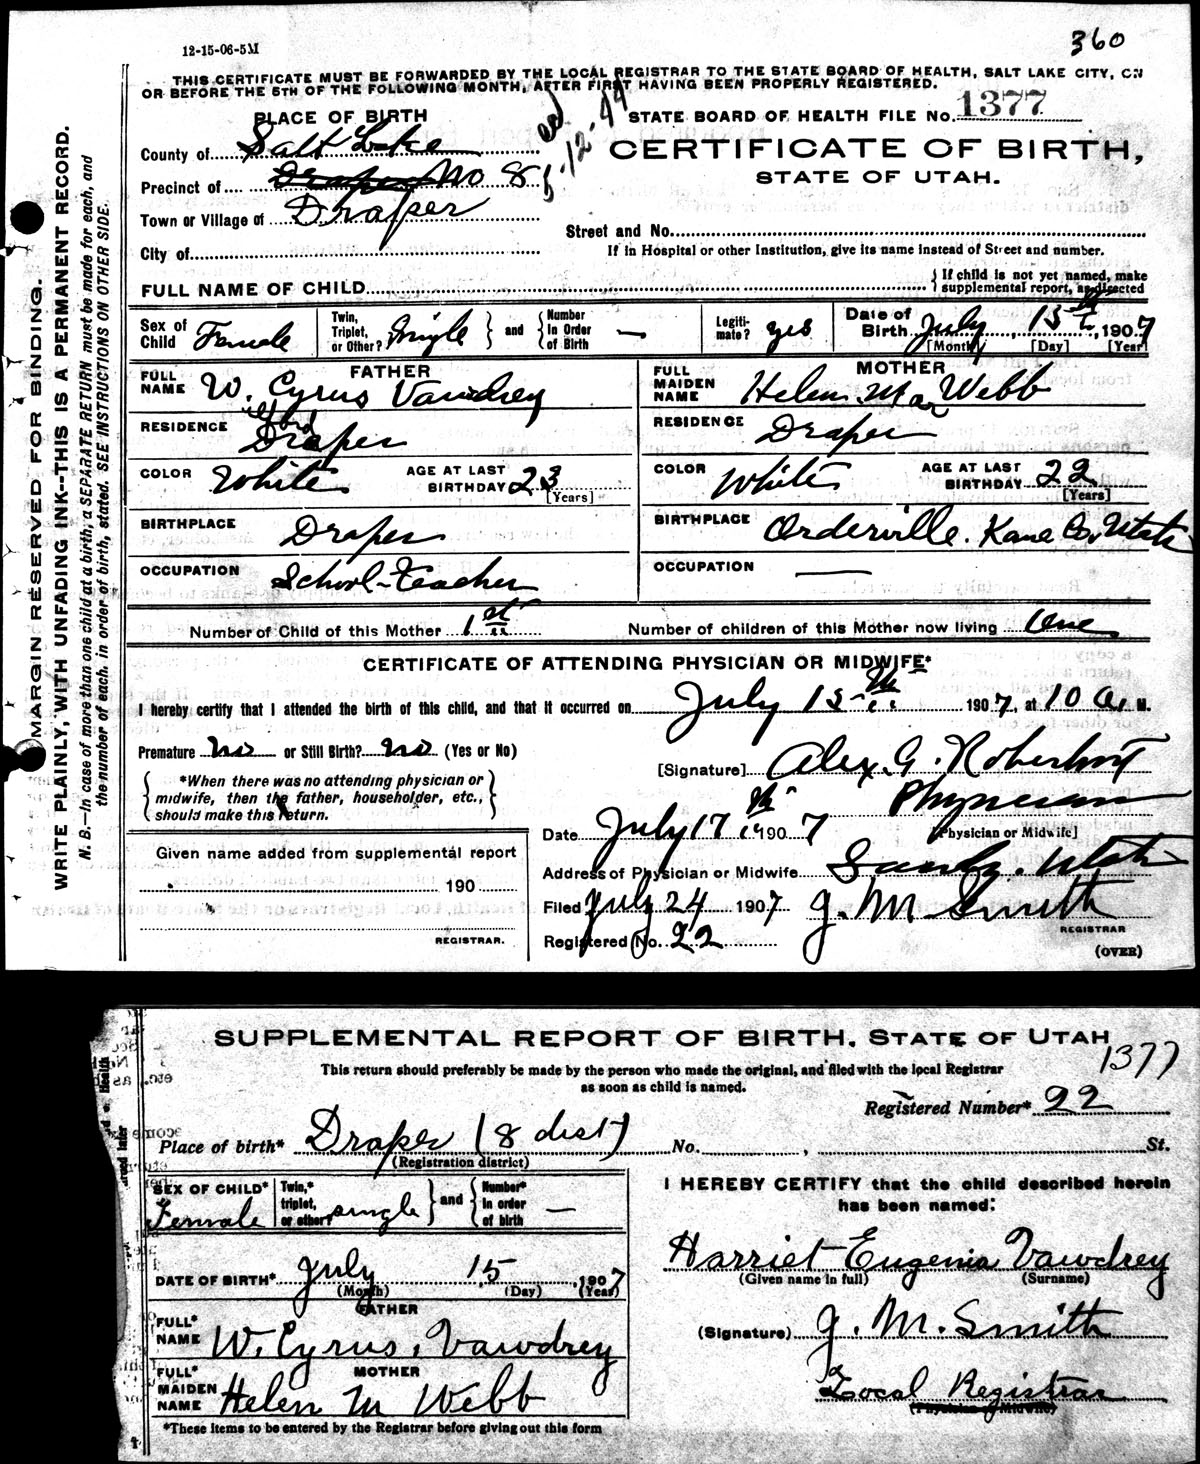 12-15-06-5M
360
THIS CERTIFICATE MUST BE FORWARDED BY THE LOCAL REGISTRAR TO THE STATE BOARD OF HEALTH, SALT LAKE CITY, ON
OR BEFORE THE 5TH OF THE FOLLOWING MONTH, AFTER FIRST HAVING BEEN PROPERLY REGISTERED.
MARGIN RESERVED FOR BINDING.
WRITE PLAINLY, WITH UNFADING INK--THIS IS A PERMANENT RECORD.
N. B.—In case of more than one child at a birth, a SEPARATE RETURN must be made for each, and
the number of each, in order of birth, stated. SEE INSTRUCTIONS ON OTHER SIDE.
PLACE OF BIRTH
5-12-44
STATE BOARD OF HEALTH FILE No. 1377
County of Salt Lake
CERTIFICATE OF BIRTH,
STATE OF UTAH.
Precinct of Draper No 8
Town or Village of Draper
Street and No.
City of
If in Hospital or other Institution, give its name instead of Street and number.
FULL NAME OF CHILD
{ If child is not yet named, make
supplemental report, as directed
Sex of Child Female
Twin, Triplet, or Other? Single } and { Number in Order of Birth —
Legitimate? yes
Date of Birth July 15th, 1907
[Month] [Day] [Year]
FATHER
FULL NAME W. Cyrus Vawdrey
RESIDENCE Draper
COLOR White AGE AT LAST BIRTHDAY 23
[Years]
BIRTHPLACE Draper
OCCUPATION School-Teacher
MOTHER
FULL MAIDEN NAME Helen Mar Webb
RESIDENCE Draper
COLOR White AGE AT LAST BIRTHDAY 22
[Years]
BIRTHPLACE Orderville. Kane Co. Utah
OCCUPATION —
Number of Child of this Mother 1st
Number of children of this Mother now living One
CERTIFICATE OF ATTENDING PHYSICIAN OR MIDWIFE*
I hereby certify that I attended the birth of this child, and that it occurred on July 15th 1907, at 10 A. M.
Premature no or Still Birth? no (Yes or No)
{ *When there was no attending physician or
midwife, then the father, householder, etc.,
should make this return. }
[Signature] Alex. G. Robertson
Physician
Date July 17th 1907
[Physician or Midwife]
Address of Physician or Midwife Sandy. Utah
Given name added from supplemental report
190
REGISTRAR.
Filed July 24 1907 J. M. Smith
REGISTRAR
Registered No. 22
(OVER)
SUPPLEMENTAL REPORT OF BIRTH, STATE OF UTAH
1377
This return should preferably be made by the person who made the original, and filed with the local Registrar
as soon as child is named.
Registered Number* 22
Place of birth* Draper (8 dist) No. , St.
(Registration district)
SEX OF CHILD* Female
Twin,* triplet, or other? single } and { Number* in order of birth —
DATE OF BIRTH* July 15, 1907
(Month) (Day) (Year)
FATHER
FULL* NAME W. Cyrus, Vawdrey
MOTHER
FULL* MAIDEN NAME Helen M Webb
*These items to be entered by the Registrar before giving out this form
I HEREBY CERTIFY that the child described herein
has been named:
Harriet Eugenia Vawdrey
(Given name in full) (Surname)
(Signature) J. M. Smith
Local Registrar
(Physician or Midwife)